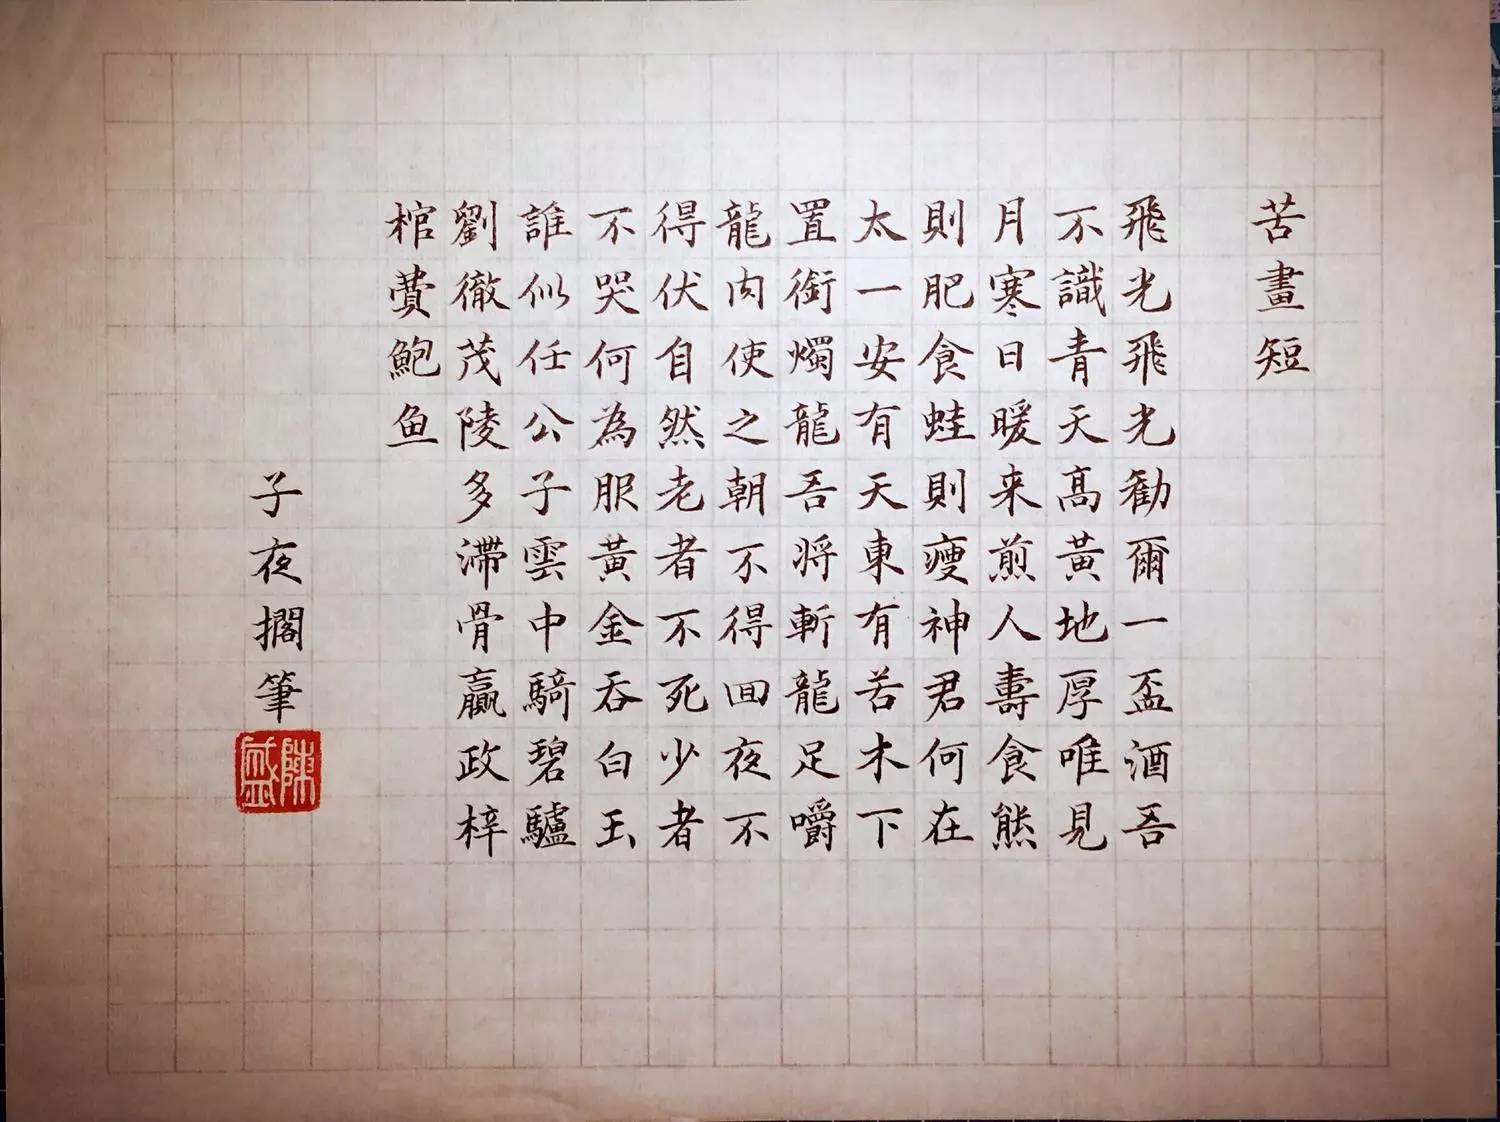 苦畫短
飛光飛光勸爾一盃酒吾
不識青天高黃地厚唯見
月寒日暖来煎人壽食熊
則肥食蛙則瘦神君何在
太一安有天東有若木下
置銜燭龍吾將斬龍足嚼
龍肉使之朝不得回夜不
得伏自然老者不死少者
不哭何為服黃金吞白玉
誰似任公子雲中騎碧驢
劉徹茂陵多滯骨嬴政梓
棺費鮑鱼
子夜擱筆
陳盛